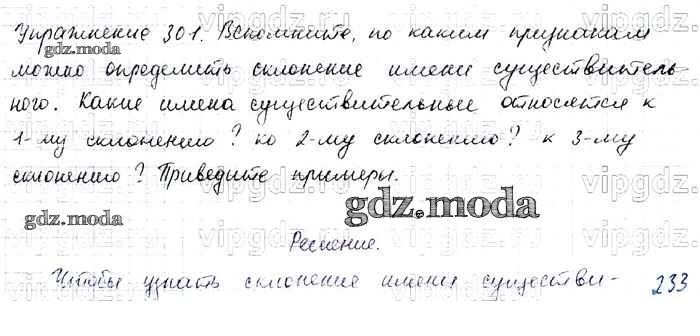 Упражнение 301. Вспомните, по каким признакам
gdz.moda vipgdz.com
можно определить склонение имени существитель-
ного. Какие имена существительные относятся к
1-му склонению? ко 2-му склонению? к 3-му
склонению? Приведите примеры.
gdz.moda gdz.moda
Решение.
Чтобы узнать склонение имени существи- 233